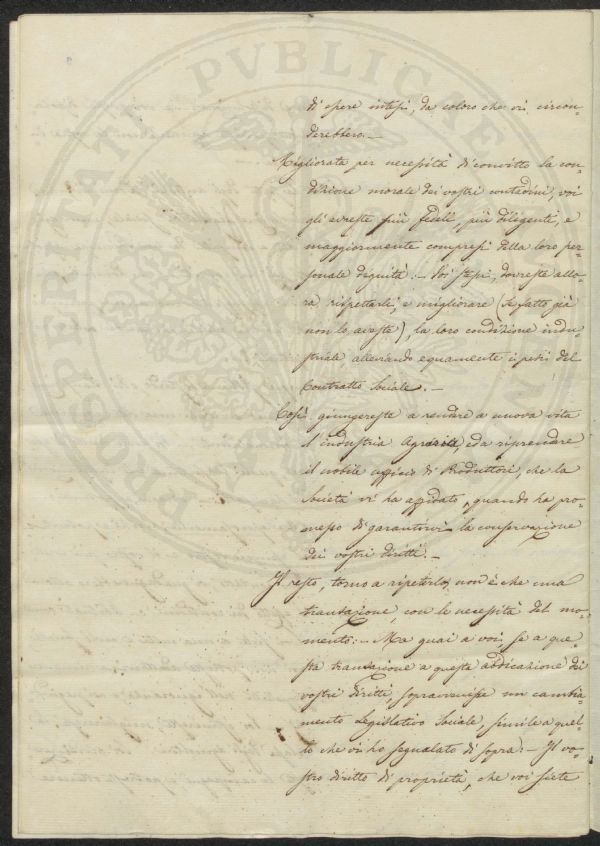 PROSPERITATI PVBLICAE
di opere intesi, da coloro che vi circon-
derebbero. -
Migliorata per necessità di convitto la con-
dizione morale dei vostri contadini, voi
gli avreste più fedeli, più diligenti, e
maggiormente compresi della loro per-
sonale dignità: - Voi stessi, dovreste allo-
ra rispettarli, e migliorare (se fatto già
non lo aveste), la loro condizione indu-
striale alleviando equamente i pesi del
Contratto Sociale. -
Così giungereste a rendere a nuova vita
l'industria Agraria, ed a riprendere
il nobile ufficio di Produttori, che la
Società vi ha affidato, quando ha pro-
messo di garantirvi la conservazione
dei vostri diritti. -
Il resto, torno a ripeterlo, non è che una
transazione, con le necessità del mo-
mento: - Ma guai a voi, se a que-
sta transazione a questa abdicazione dei
vostri diritti, sopravvenisse un cambia-
mento Legislativo Sociale, simile a quel-
lo che vi ho segnalato di sopra: - Il vo-
stro diritto di proprietà, che voi siete